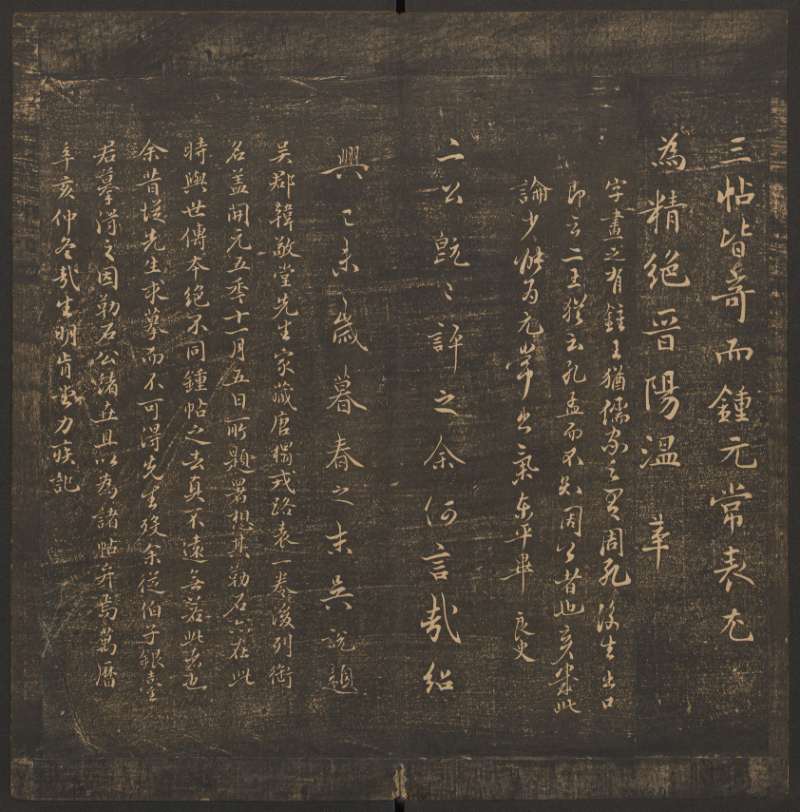 三帖皆奇而鍾元常表尤
為精絕晉陽溫 革
字畫之有鍾王猶儒家之有周孔後生出口
即言二王猶云孔孟而不知周公者也彥柴此
論少能為元常出氣東平畢 良史
二公既已評之余何言哉紹
興己未歲暮春之末吳說題
吳郡韓敬堂先生家藏唐搨戎路表一卷後列銜
名蓋開元五年十一月五日所題署想其勒石亦在此
時與世傳本絕不同鍾帖之去真不遠無若此表也
余昔從先生求摹而不可得先生歿余從伯子銀臺
君摹得之因勒石公諸
且以為諸帖弁焉萬曆
辛亥仲冬哉生明肯堂力疾記